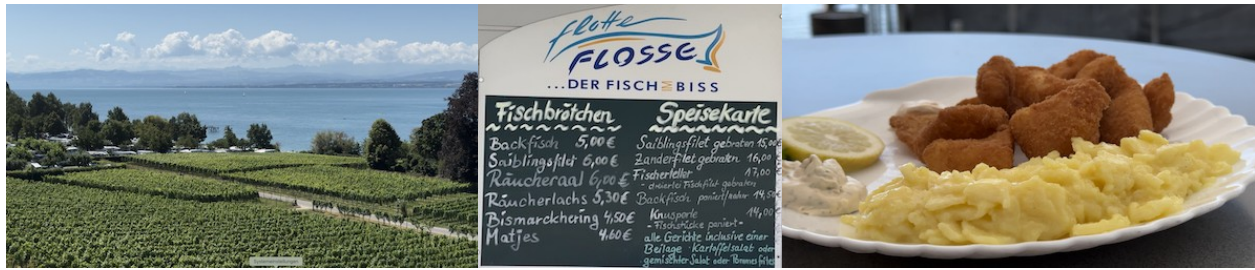 flotte
FLOSSE
...DER FISCH IM BISS
Fischbrötchen
Backfisch 5,00€
Saiblingsfilet 6,00€
Räucheraal 6,00€
Räucherlachs 5,30€
Bismarckhering 4,50€
Matjes 4,60€
Speisekarte
Saiblingsfilet gebraten 15,00
Zanderfilet gebraten 16,00
Fischerteller 17,00
- dreierlei Fischfilet gebraten
Backfisch paniert/natur 14,50
Knusperle 14,00
- Fischstücke paniert -
alle Gerichte inclusive einer
Beilage · Kartoffelsalat oder
gemischter Salat oder Pommes frites